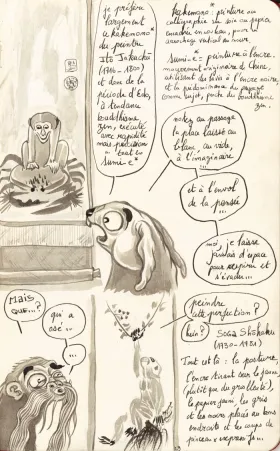 je préfère
largement
ce kakemono*
du peintre
Ito Jakuchū
(1716-1800)
et donc de la
période d'Edo,
à tendance
bouddhisme
zen, exécuté
avec rapidité
mais précision
en tout en
sumi-e*
kakemono : peinture ou
calligraphie sur soie ou papier,
encadrée en rouleau, pour un
accrochage vertical au mur.
sumi-e : peinture à l'encre,
mouvement originaire de Chine,
utilisant du lavis à l'encre noire,
et la prédominance du paysage
comme sujet, proche du bouddhisme
zen.
notez au passage
la place laissée au
blanc, au vide,
à l'imaginaire
...
et à l'envol
de la pensée
...
moi, je laisse
jamais d'espace
pour respirer et
s'évader...
Mais
que...?
qui a
osé ...
...?
peindre
cette perfection?
hein? Soga Shōhaku
(1730-1781)
Tout est là : la posture,
l'encre tirant sur le jaune
(plutôt que du gris
le papier jauni, les gris
et les noirs placés au bons
endroits et les coups de
pinceaux expressifs...